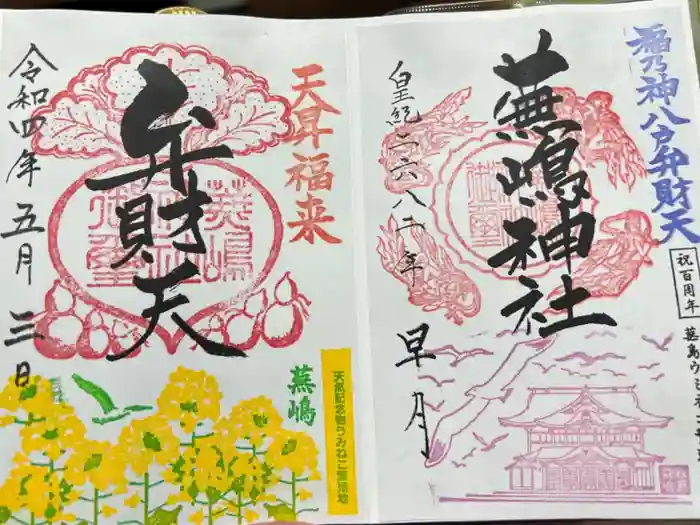 福乃神八戸弁財天
祝百周年
蕪嶋神社
皇紀二六八二年
早月
天昇福来
弁財天
令和四年五月三日
蕪嶋
天然記念物うみねこ繁殖地